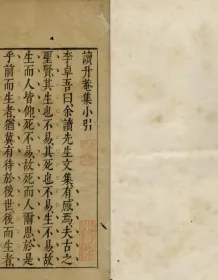 讀升菴集小引
李卓吾曰余讀先生文集有感焉夫古之
聖賢其生也不易其死也不易生不易故
生而人皆仰死不易故死而人爾思於是
乎前而生者猶冀有待於後世後而生者